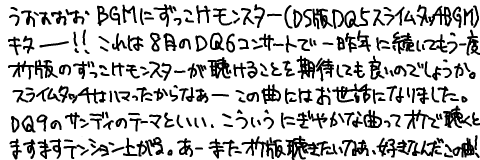 うおおおお BGMにずっこけモンスター(DS版DQ5スライムタッチBGM)
キター!! これは8月のDQ6コンサートで一昨年に続いてもう一度
オケ版のずっこけモンスターが聴けることを期待しても良いのでしょうか。
スライムタッチはハマったからなぁー この曲にはお世話になりました。
DQ9のサンディのテーマといい、こういうにぎやかな曲ってオケで聴くと
ますますテンション上がる。あーまたオケ版聴きたいなぁ、好きなんだこの曲!